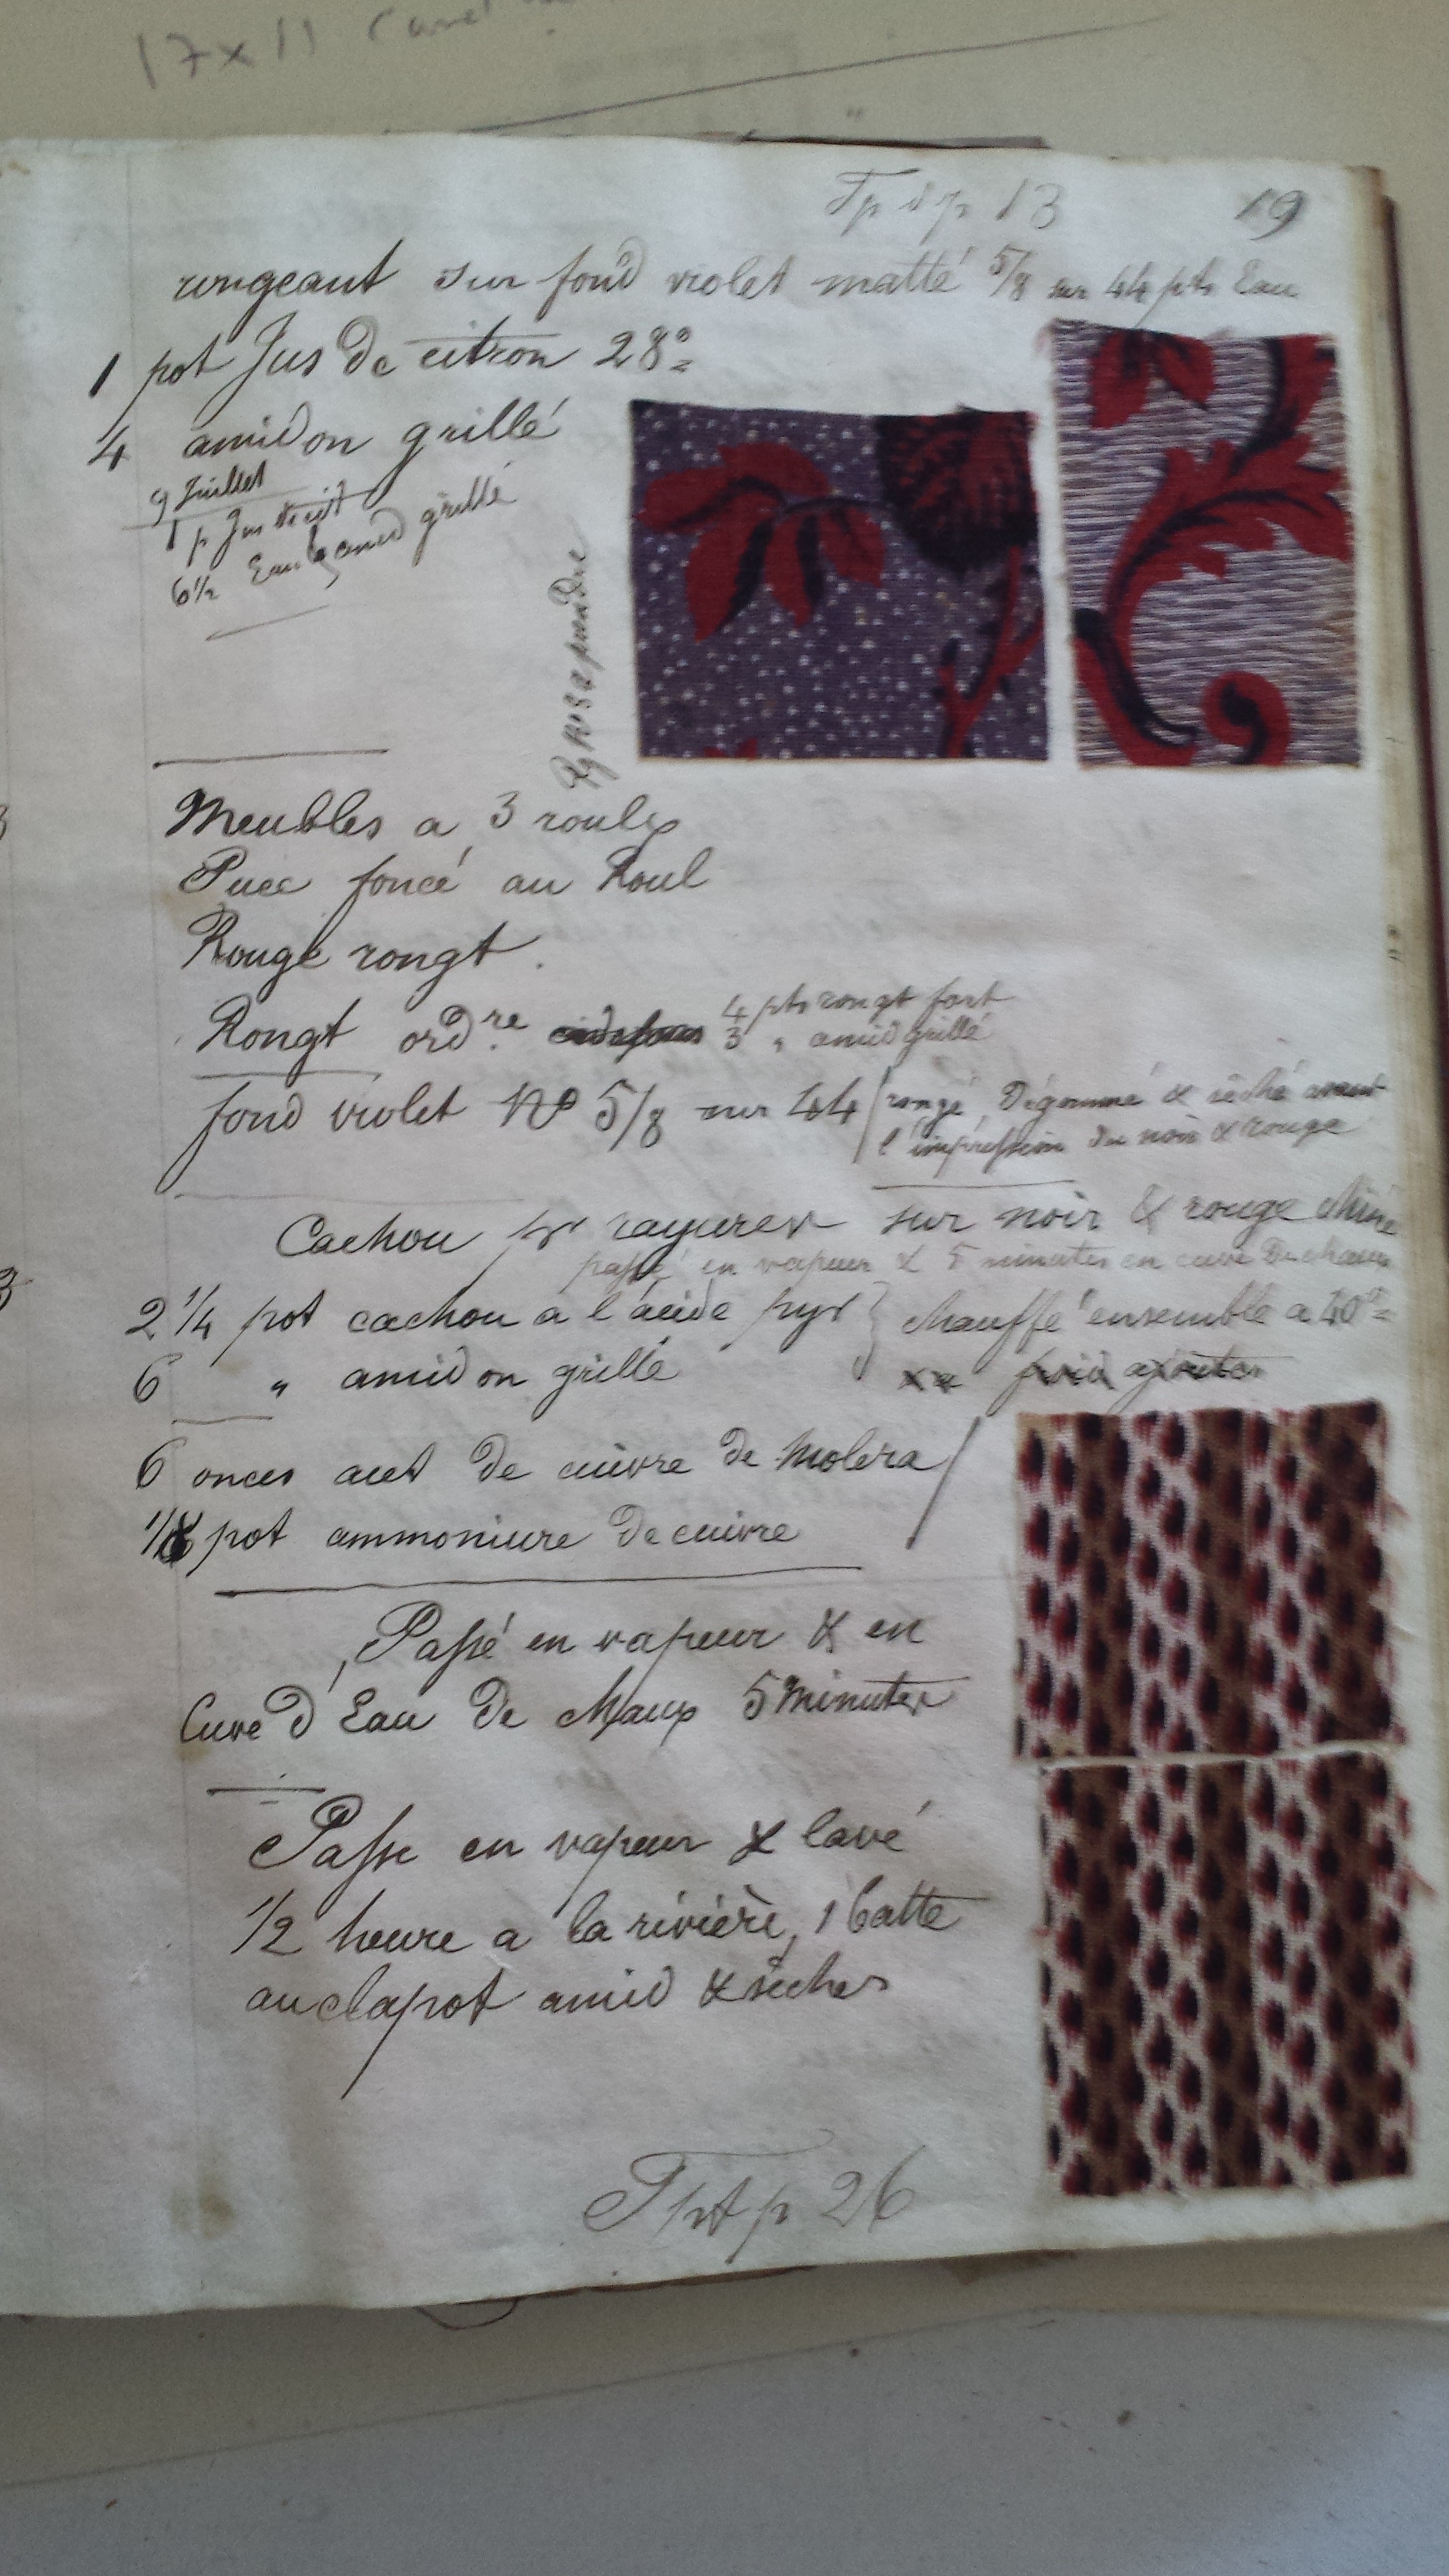 17 x 11
p 13 19
rongeant sur fond violet matté 5/8 sur 44 pts Eau
1 pot Jus de citron 28°
4 amidon grillé
9 Juillet
1 p Jus de cit
6 1/2 Eau amid grillé
Meubles a 3 roul
Puce foncé au Roul
Rouge rongt.
Rongt ordre 4 pts rongt fort
3 " amid grillé
fond violet No 5/8 sur 44 rongé, Dégommé & séché avant
l'impression du noir & rouge
Cachou pr rayures sur noir & rouge
passé en vapeur & 5 minutes en cuve De chaux
2 1/4 pot cachou a l'acide pyr } chauffé ensemble a 40°
6 " amidon grillé
froid ajouter
6 onces acet de cuivre de Molera
1/8 pot ammoniure De cuivre
Passé en vapeur & en
Cuve d'Eau De chaux 5 Minutes
Passé en vapeur & lavé
1/2 heure a la rivière, 1 batte
au clapot amid & sécher
p 26